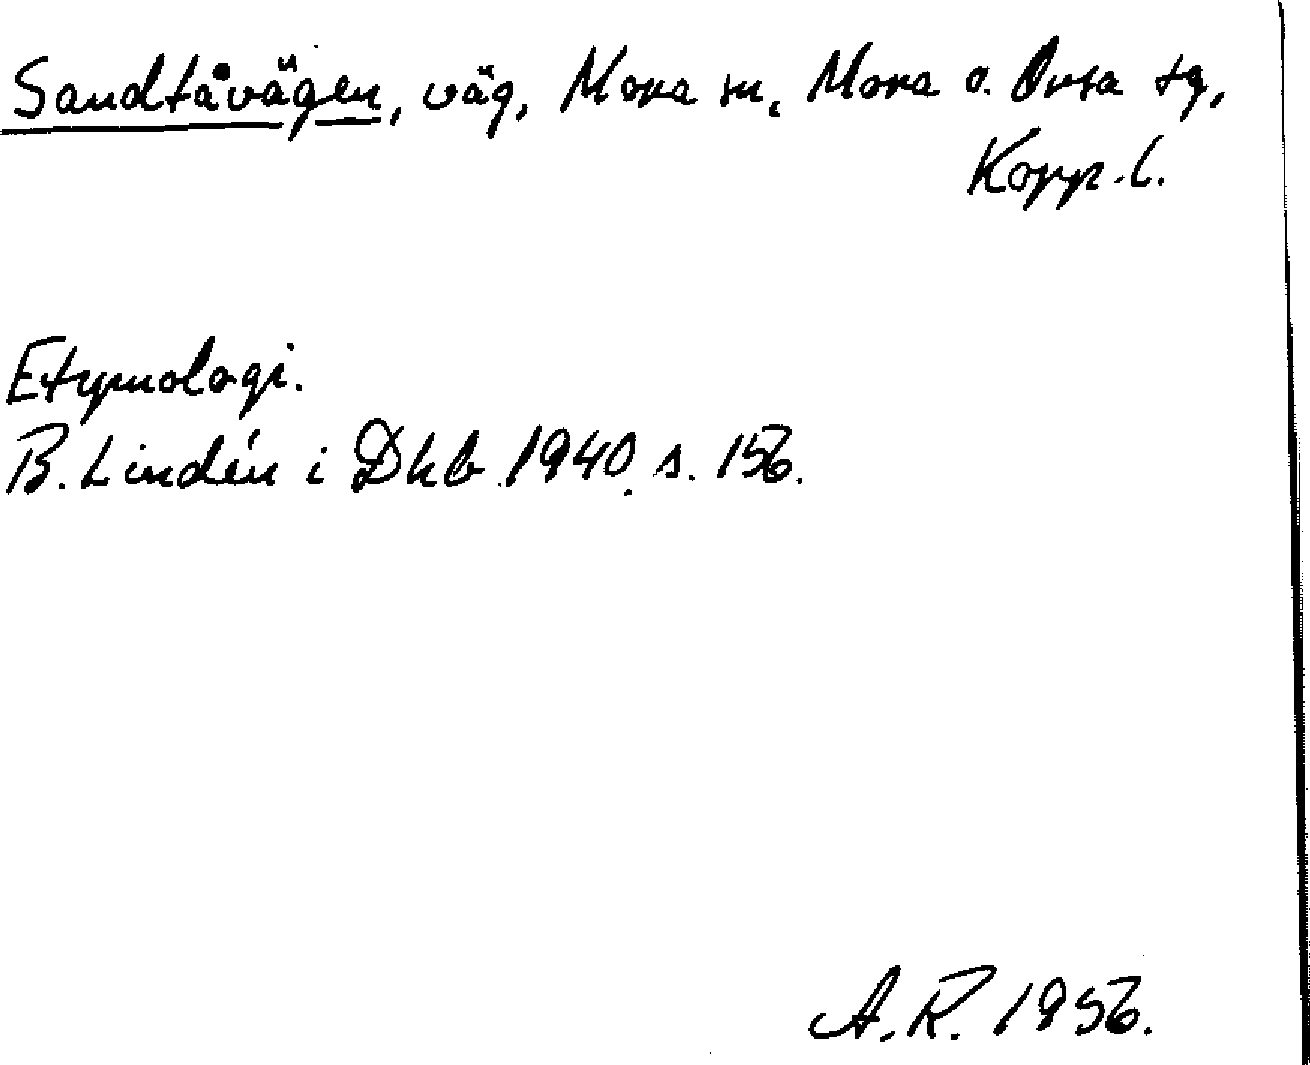 Sandtåvägen, väg, Mora sn, Mora o. Orsa tg,
Kopp. l.
Etymologi.
B. Lindén i Dhb 1940, s. 156.
A.R. 1956.